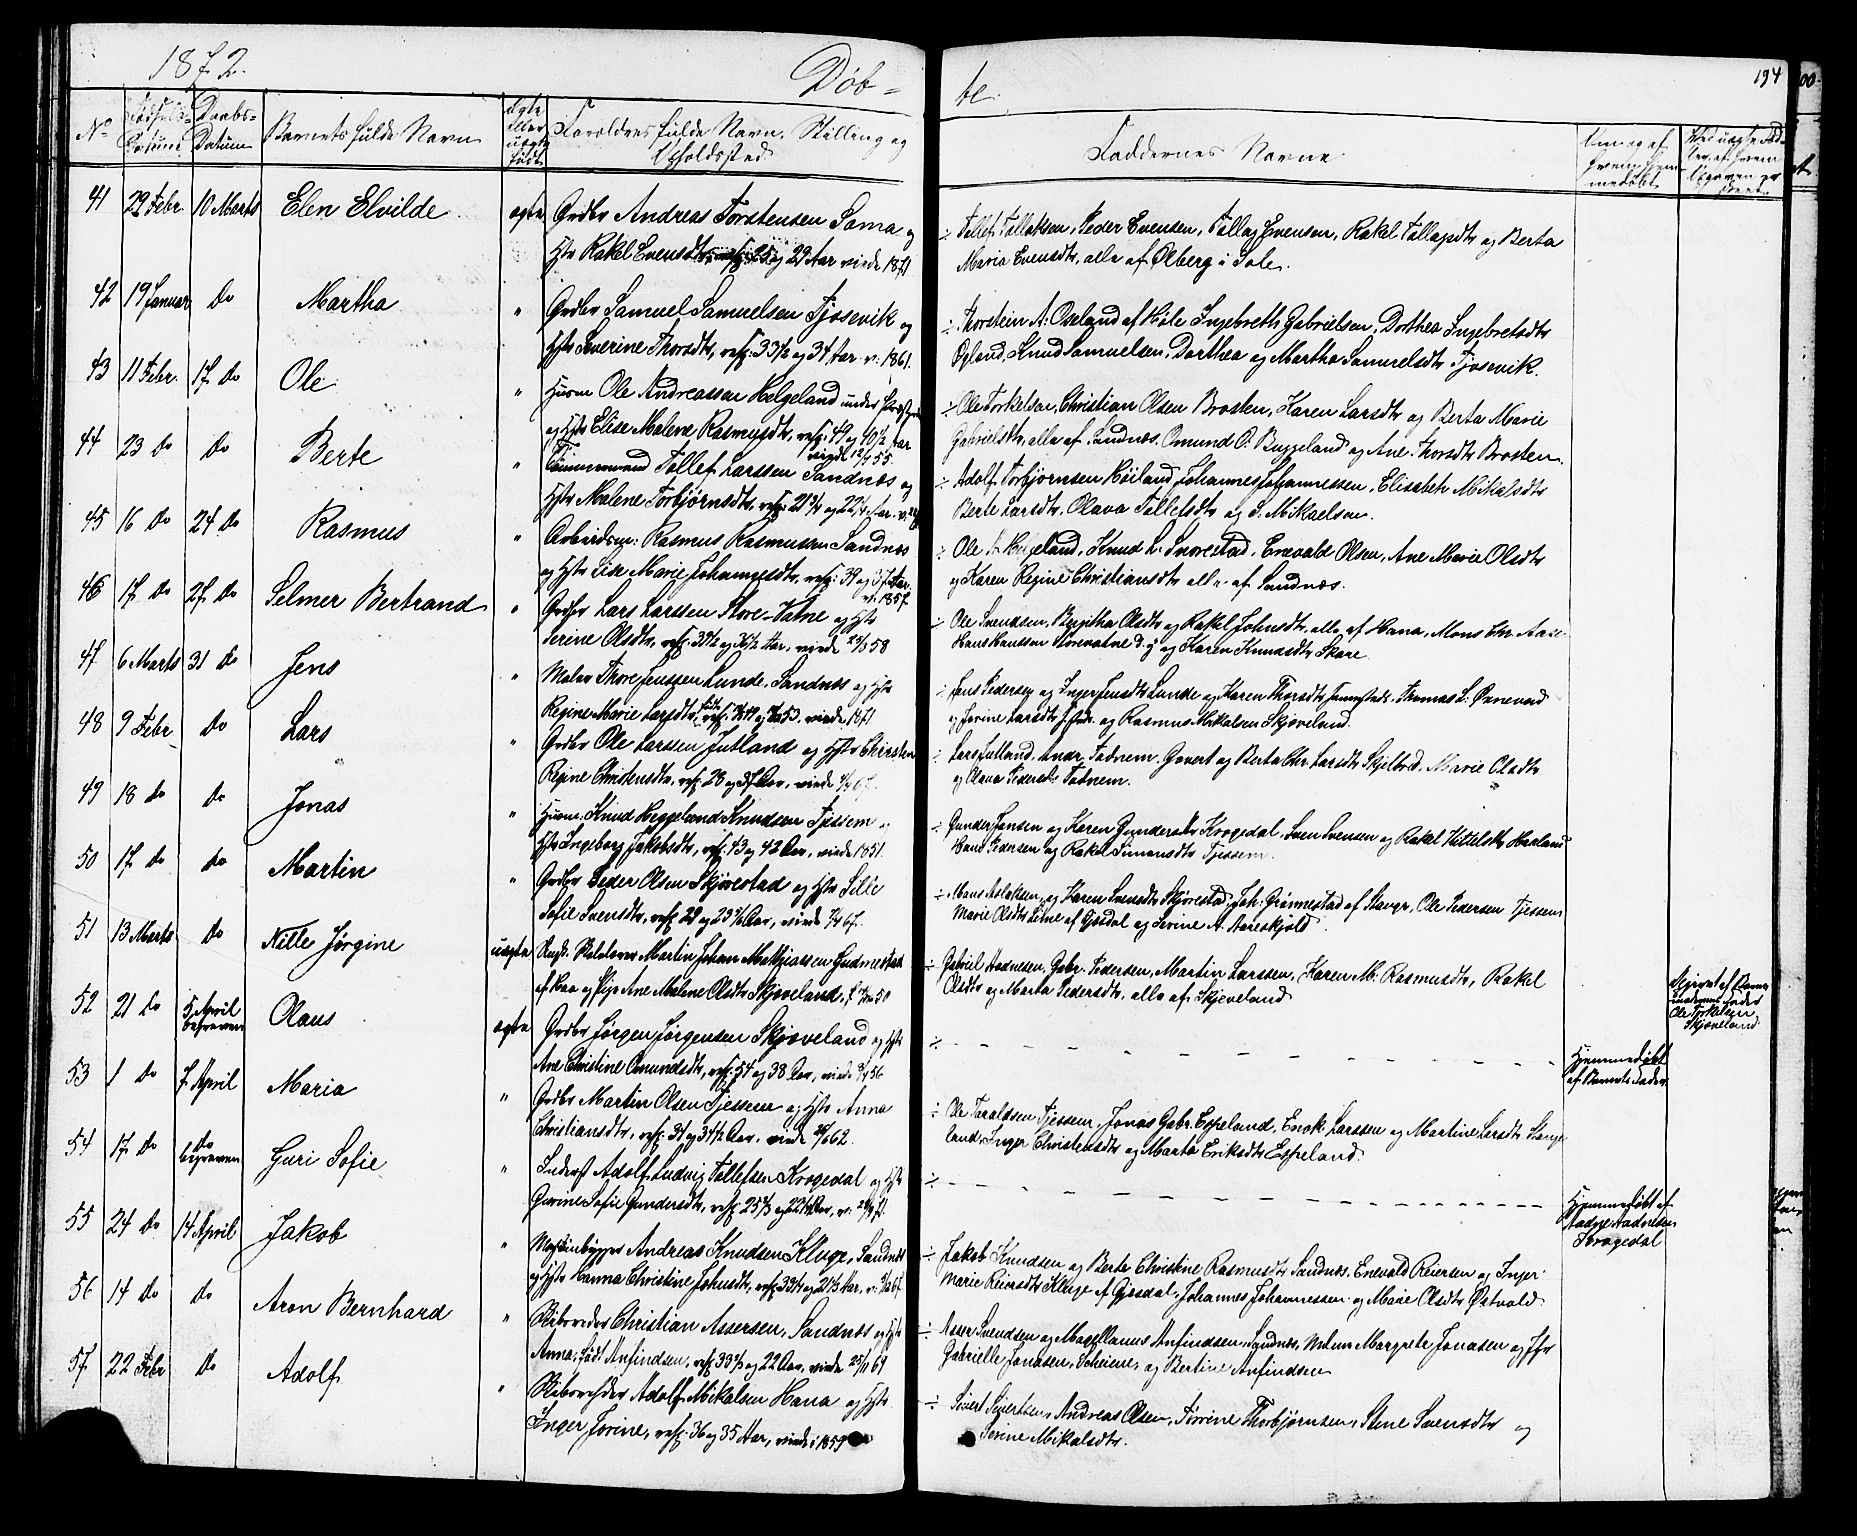 1872.
Døb-
te.
194
No
Fødsels-
Datum
Daabs-
Datum
Barnets fulde Navn
Ægte
eller
uægte
født
Forældres fulde Navn, Stilling og
Opholdssted
Faddernes Navne
Om og af
hvem hjem-
medøbt
41 29 Febr. 10 Marts Elen Elvilde ægte
Grdbr Andreas Torstensen Soma og
Hstr Rakel Evensdtr, resp. 25 og 29 Aar viede 1871
÷ Tollef Tollaksen, Peder Evensen, Tollag Evensen, Rakel
og Berta
Maria Evensdtr, alle af Ølberg i Sole.
42 19 Januar Do Martha "
Grdbr Samuel Samuelsen Tjosevik og
Hstr Severine Thorsdtr, resp. 33 1/2 og 34 Aar v. 1861.
÷ Thorstein A. Oseland af Høle Ingebreth Gabrielsen, Dorthea Ingebretsdtr
Øgland, Knud Samuelsen, Dorthea og Martha Samuelsdtr Tjosevik.
43 11 Febr. 17 Do Ole "
Husm Ole Andreassen Helgeland under
og Hstr Elise Malene Rasmusdtr, resp. 49 og 40 1/2 Aar
viede 12/7 55.
÷ Ole Torkelsen, Christian Olsen Brosten, Karen Larsdtr og Berta Marie
Gabrielsdtr, alle af Sandnæs. Omund O. Buggeland og Ane Thorsdtr Brosten.
44 23 Do Do Berte "
Tømmermand Tollef Larssen Sandnæs og
Hstr Malene Torbjørnsdtr, resp.
÷ Adolf Torbjørnsen Høiland, Johannes Johannessen, Elisabeth Mikalsdtr
Berte Larsdtr, Olava Tollefsdtr og S. Mikaelsen.
45 16 Do 24 Do Rasmus "
Arbeidsm: Rasmus Rasmussen Sandnæs
og Hstr Lise Marie Johannesdtr, resp: 39 og 37 Aar.
v. 1857.
÷ Ole A. Helgeland, Knud L. Snorestad, Enevald Olsen, Ane Marie Olsdtr
og Karen Regine Christiansdtr alle af Sandnæs.
46 17 Do 27 Do Selmer Bertrand "
Grdbr Lars Larssen Store-Vatne og Hstr
Serine Olsdtr, resp. 39 1/2 og 36 1/2 Aar, viede 23/5 58
÷ Ole Svendsen, Birgitha Olsdtr og Rakel Johnsdtr, alle af Hana, Mons Chr. Aase
Hans Hanssen Storevatne d. y og Karen Knudsdtr Skare.
47 6 Marts 31 Do Jens "
Maler Thore Jenssen Lunde, Sandnæs og Hstr
Regine Marie Larsdtr,
viede 1871
÷ Jens Pedersen og Inger Jensdtr Lunde og Karen Thorsdtr
Thomas L. Ørnevad
og Jorine Larsdtr
og Rasmus Mikalsen Skjæveland.
48 9 Febr. Do Lars "
Grdbr Ole Larssen Jutland og Hstr Chirsten
Regine Christensdtr, resp. 28 og 37 Aar, viede
÷ Lars Jutland, Andr. Tadnem, Govert og Berta Chr. Larsdtr Skjelbred. Marie Olsdtr
og Olava Pedersdtr Tadnem.
49 18 Do Do Jonas "
Husm: Knud Heggeland Knudsen Tjessem og
Hstr Ingeborg Jakobsdtr, resp. 43 og 42 Aar, viede 1851.
÷ Gunder Jansen og Karen Gundersdtr Krogedal, Sven Svensen og Rakel Kittelsdtr Haaland
Hans Pedersen og Rakel Simonsdtr Tjessem.
50 17 Do Do Martin "
Grdbr Peder Olsen Skjørestad og Hstr Sille
Sofie Svensdtr, resp. 29 og 23 Aar, viede 67.
÷ Mons Aslaksen og Karen Svensdtr Skjørestad, Joh. Grønnestad af Stavgr, Ole Pedersen Tjessem
Marie Olsdtr Lime af Gjesdal og Serine A. Aareskjold.
51 13 Marts Do Nille Jørgine uægte
Ungk. Skolelærer Martin Johan Mathiassen Gudmestad
af Haa og Pige Ane Malene Olsdtr Skjæveland, f. 50
÷ Gabriel Aadnesen, Gabr. Pedersen, Martin Larssen, Karen M. Rasmusdtr, Rakel
Olsdtr og Marta Pedersdtr, alle af Skjæveland
Opgivet af Barne-
moderens Fader
Ole Torkelsen
Skjæveland
52 21 Do 5 April
begraven Olaus ægte
Grdbr Jørgen Jørgensen Skjæveland og Hstr
Ane Christine Omundsdtr, resp: 54 og 38 Aar, viede 56
÷ – – – – – – – – –
Hjemmedøbt
af Barnets Fader
53 1 Do 7 April Maria "
Grdbr Martin Olsen Tjessem og Hstr Anna
Christiansdtr, resp. 31 og 34 1/2 Aar. viede 62.
÷ Ole Taraldsen Tjessem, Jonas Gabr. Espeland, Enok Larssen og Martine Larsdtr Stange-
land, Inger Christensdtr og Marta Eriksdtr Espeland.
54 17 Do Do
begraven Guri Sofie "
Inderst Adolf Ludvig Tollefsen Krogedal og Hstr
Gurine Sofie Gundersdtr, resp. 25 og 22 Aar, v:
÷ – – – – – – – – –
Hjemmedøbt af
Aadne Aadnesen
Krogedal
55 24 Do 14 April Jakob "
Maskinbygger Andreas Knudsen Kluge, Sandnæs
og Hstr Hanna Christine Johnsdtr, resp.
÷ Jakob Knudsen og Berte Christine Rasmusdtr Sandnæs. Enevald Reiersen og Inger
Marie Reiersdtr Kluge af Gjesdal, Johannes Johannessen og Marie Olsdtr Østvold.
56 14 Do Do Aron Bernhard "
Skibsreder Christian Assersen, Sandnæs og Hstr
Anna, født Anfindsen, resp. 33 og 22 Aar, viede 25/11 69
÷ Asser Svendsen og Magellanus Anfindsen Sandnæs,
Margrete Jonasen og Jfr
Gabrielle Jonassen,
og Bertine Anfindsen
57 22 Febr Do Adolf "
Skibsreder Adolf Mikalsen Hana og Hstr
Inger Jorine, resp. 36 og 35 Aar, viede i 1859
÷ Sivert Sivertsen, Andreas Olsen, Tørrine Thorbjørnsen, Stine Svensdtr og
Serine Mikalsdtr.